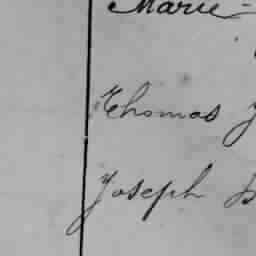 Marie-
Thomas
Joseph